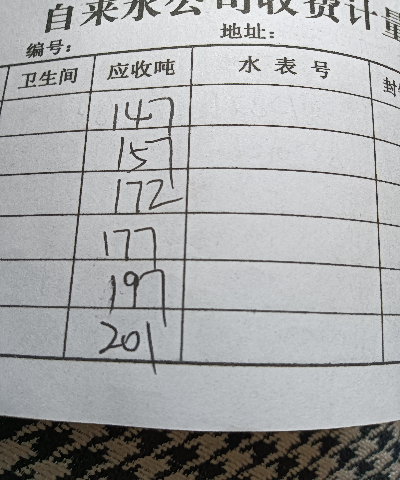 自来水公司收费计量
编号:
地址:
卫生间 应收吨 水表号 封
147
157
172
177
197
201